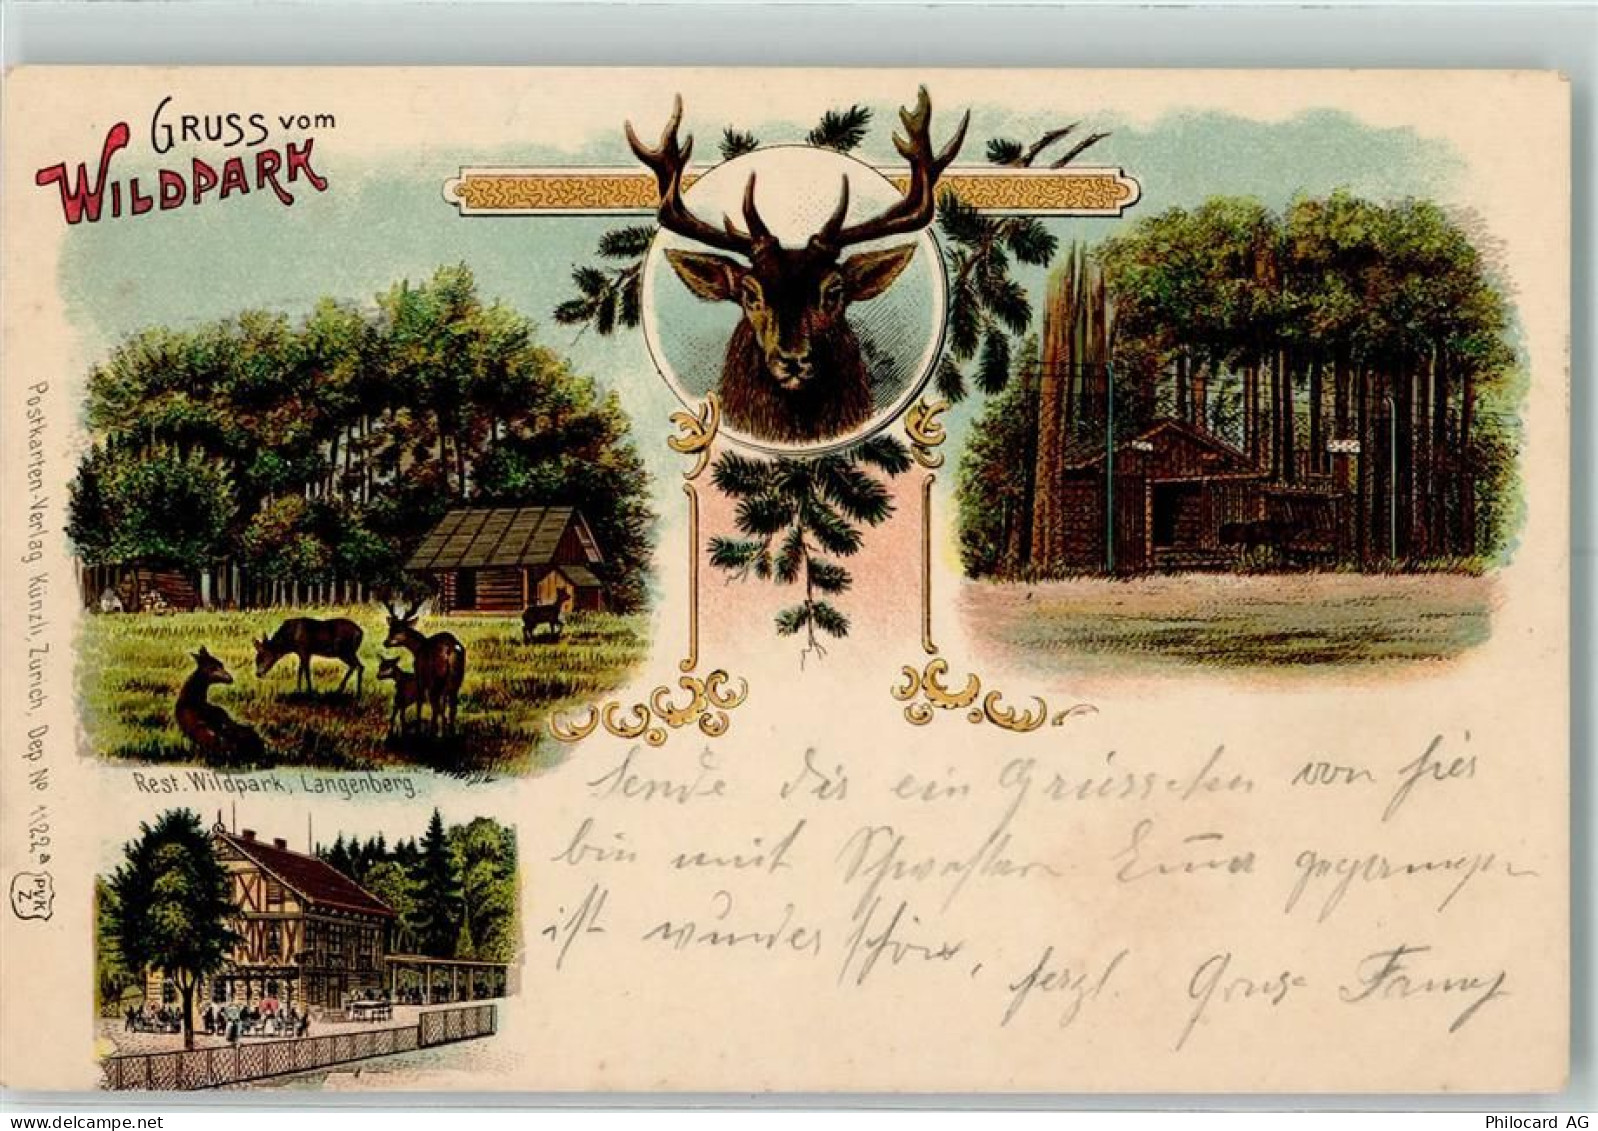 GRUSS vom
WILDPARK
Postkarten-Verlag Künzli, Zürich, Dep. No 1122a
PVK
Z
Rest. Wildpark, Langenberg.
Sende dir ein Grüsschen von hier
bin mit Schwester Emma
ist wunder schön,
herzl. Gruss Fanny
Philocard AG